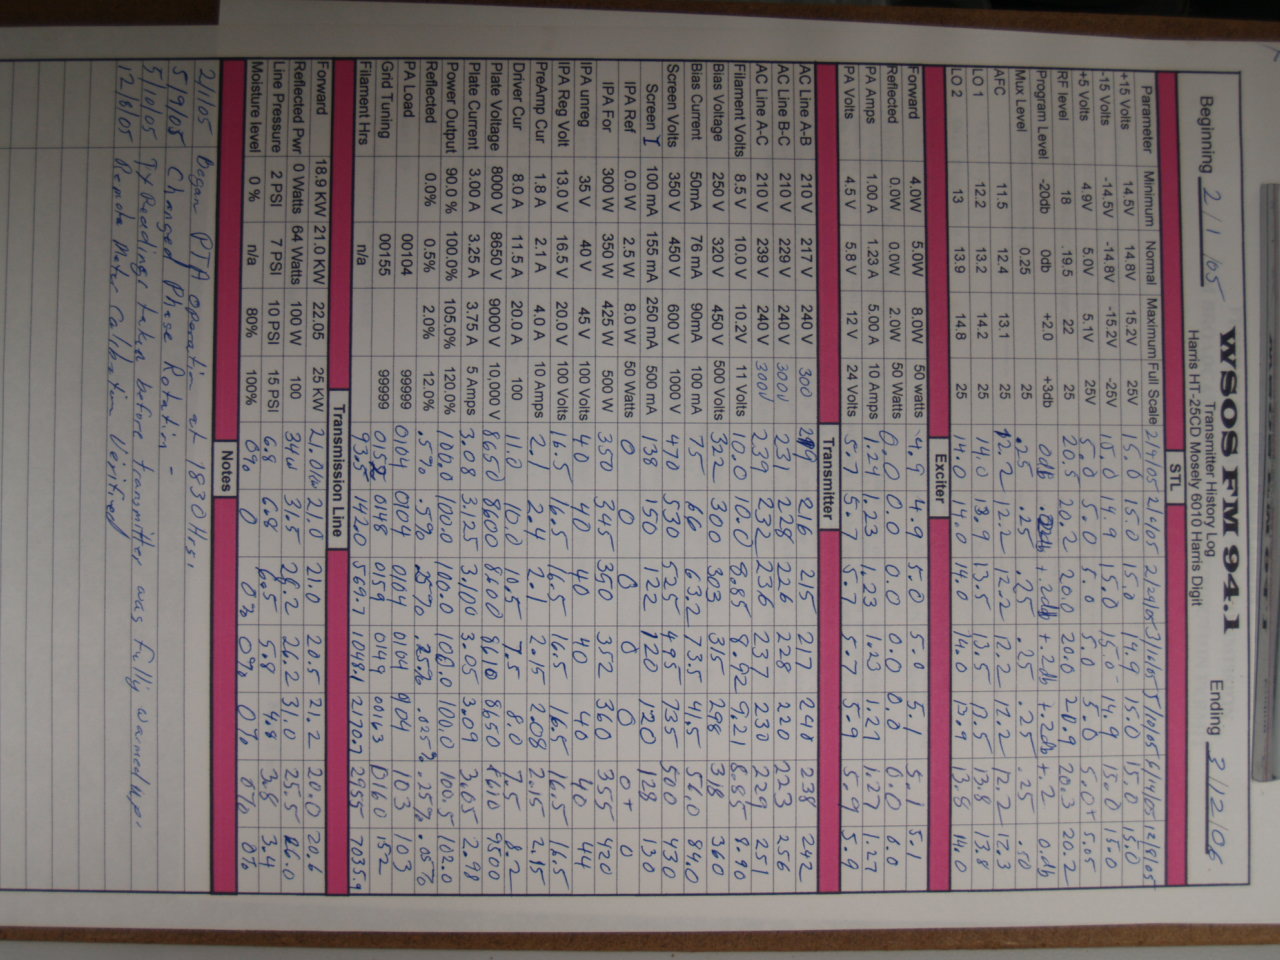 WSOS FM 94.1
Transmitter History Log
Beginning 2/1/05 Ending 3/12/06
Harris HT-25CD Mosely 6010 Harris Digit
STL
Parameter Minimum Normal Maximum Full Scale 2/4/05 2/6/05 2/24/05 3/16/05 5/10/05 6/14/05 12/8/05
+15 Volts 14.5V 14.8V 15.2V 25V 15.0 15.0 15.0 14.9 15.0 15.0 15.0
-15 Volts -14.5V -14.8V -15.2V -25V 15.0 14.9 15.0 15.0 14.9 15.0 15.0
+5 Volts 4.9V 5.0V 5.1V 25V 5.0 5.0 5.0 5.0 5.0 5.0+ 5.05
RF level 18 19.5 22 25 20.5 20.2 20.0 20.0 20.9 20.3 20.2
Program Level -20db 0db +2.0 +3db 0db +.2db +.2db +.2db +.2 0.db
Mux Level 0.25 25 .25 .25 .25 .25 .25 .25 .10
AFC 11.5 12.4 13.1 25 12.2 12.2 12.2 12.2 12.2 12.2 12.3
LO 1 12.2 13.2 14.2 25 14.0 13.9 13.5 13.5 13.5 13.8 13.8
LO 2 13 13.9 14.8 25 14.0 14.0 14.0 14.0 13.9 13.8 14.0
Exciter
Forward 4.0W 5.0W 8.0W 50 watts 4.9 4.9 5.0 5.0 5.1 5.1 5.1
Reflected 0.0W 0.0W 2.0W 50 Watts 0.0 0.0 0.0 0.0 0.0 0.0 0.0
PA Amps 1.00 A 1.23 A 5.00 A 10 Amps 1.24 1.23 1.23 1.23 1.27 1.27 1.27
PA Volts 4.5 V 5.8 V 12 V 24 Volts 5.7 5.7 5.7 5.7 5.9 5.9 5.9
Transmitter
AC Line A-B 210 V 217 V 240 V 300 219 216 215 217 240 238 242
AC Line B-C 210 V 229 V 240 V 300V 231 228 226 228 220 223 256
AC Line A-C 210 V 239 V 240 V 300V 239 232 236 237 230 229 251
Filament Volts 8.5 V 10.0 V 10.2V 11 Volts 10.0 10.0 8.85 8.92 9.21 8.85 8.90
Bias Voltage 250 V 320 V 450 V 500 Volts 322 300 303 315 298 318 360
Bias Current 50mA 76 mA 90mA 100 mA 75 66 63.2 73.5 41.5 56.0 84.0
Screen Volts 350 V 450 V 600 V 1000 V 470 530 525 495 735 500 430
Screen I 100 mA 155 mA 250 mA 500 mA 138 150 122 120 120 128 130
IPA Ref 0.0 W 2.5 W 8.0 W 50 Watts 0 0 0 0 0 0+ 0
IPA For 300 W 350 W 425 W 500 W 350 345 350 352 360 355 420
IPA unreg 35 V 40 V 45 V 100 Volts 40 40 40 40 40 40 44
IPA Reg Volt 13.0 V 16.5 V 20.0 V 100 Volts 16.5 16.5 16.5 16.5 16.5 16.5 16.5
PreAmp Cur 1.8 A 2.1 A 4.0 A 10 Amps 2.1 2.4 2.1 2.15 2.08 2.15 2.15
Driver Cur 8.0 A 11.5 A 20.0 A 100 11.0 10.0 10.5 7.5 8.0 7.5 8.2
Plate Voltage 8000 V 8650 V 9000 V 10,000 V 8650 8600 8600 8610 8650 8610 9500
Plate Current 3.00 A 3.25 A 3.75 A 5 Amps 3.08 3.125 3.100 3.05 3.09 3.05 2.98
Power Output 90.0 % 100.0% 105.0% 120.0% 100.0 100.0 100.0 100.0 100.0 100.5 102.0
Reflected 0.0% 0.5% 2.0% 12.0% .5% .5% .25% .25% .025% .25% .05%
PA Load 00104 99999 0104 0104 0104 0104 0104 103 103
Grid Tuning 00155 99999 0152 0148 0159 0149 0163 0160 152
Filament Hrs n/a 93.5 142.0 569.7 1048.1 2170.7 2955 7035.9
Transmission Line
Forward 18.9 KW 21.0 KW 22.05 25 KW 21.0KW 21.0 21.0 20.5 21.2 20.0 20.6
Reflected Pwr 0 Watts 64 Watts 100 W 100 34W 31.5 28.2 26.2 31.0 25.5 26.0
Line Pressure 2 PSI 7 PSI 10 PSI 15 PSI 6.8 6.8 6.5 5.8 4.8 3.8 3.4
Moisture level 0 % n/a 80% 100% 0% 0 0% 0% 0% 0% 0%
Notes
2/1/05 Began PTA operation at 1830 Hrs.
5/9/05 Changed Phase Rotation -
5/10/05 Tx Readings taken before transmitter was fully warmed up.
12/8/05 Remote Meter Calibration Verified